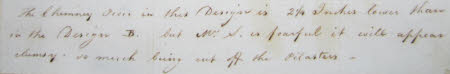 The Chimney Piece in this Design is 2½ Inches lower than
in the Design B. but Mr. S. is fearful it will appear
clumsy - so much being cut off the Pilasters -